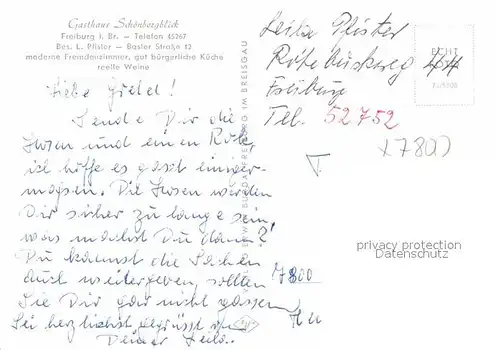 Gasthaus Schönbergblick
Freiburg i. Br. — Telefon 45267
Bes. L. Pfister — Basler Straße 12
moderne Fremdenzimmer, gut bürgerliche Küche
reelle Weine
Liebe Gretel!
Sende Dir die
Hosen und einen Rock,
ich hoffe es passt einiger-
massen. Die Hosen werden
Dir sicher zu lange sein,
was machst Du dann?
Du kannst die Sachen
auch weitergeben, sollten
Sie Dir gar nicht passen.
Sei herzlichst gegrüsst
Deine Leila.
FREIBURG IM BREISGAU
Leila Pfister
Freiburg
Tel. 52752
ECHT
7800
7800
privacy protection
Datenschutz